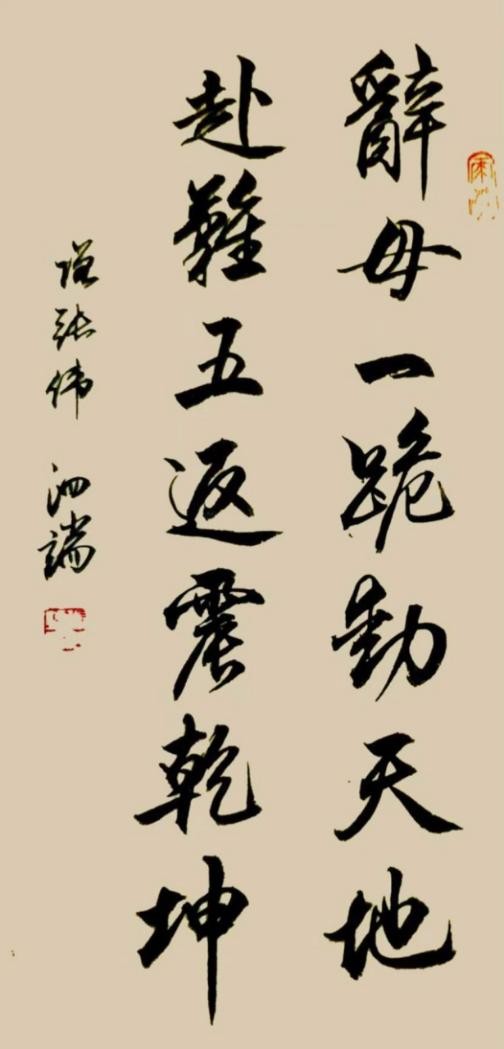 辭母一跪動天地
赴難五返震乾坤
张伟 泗端